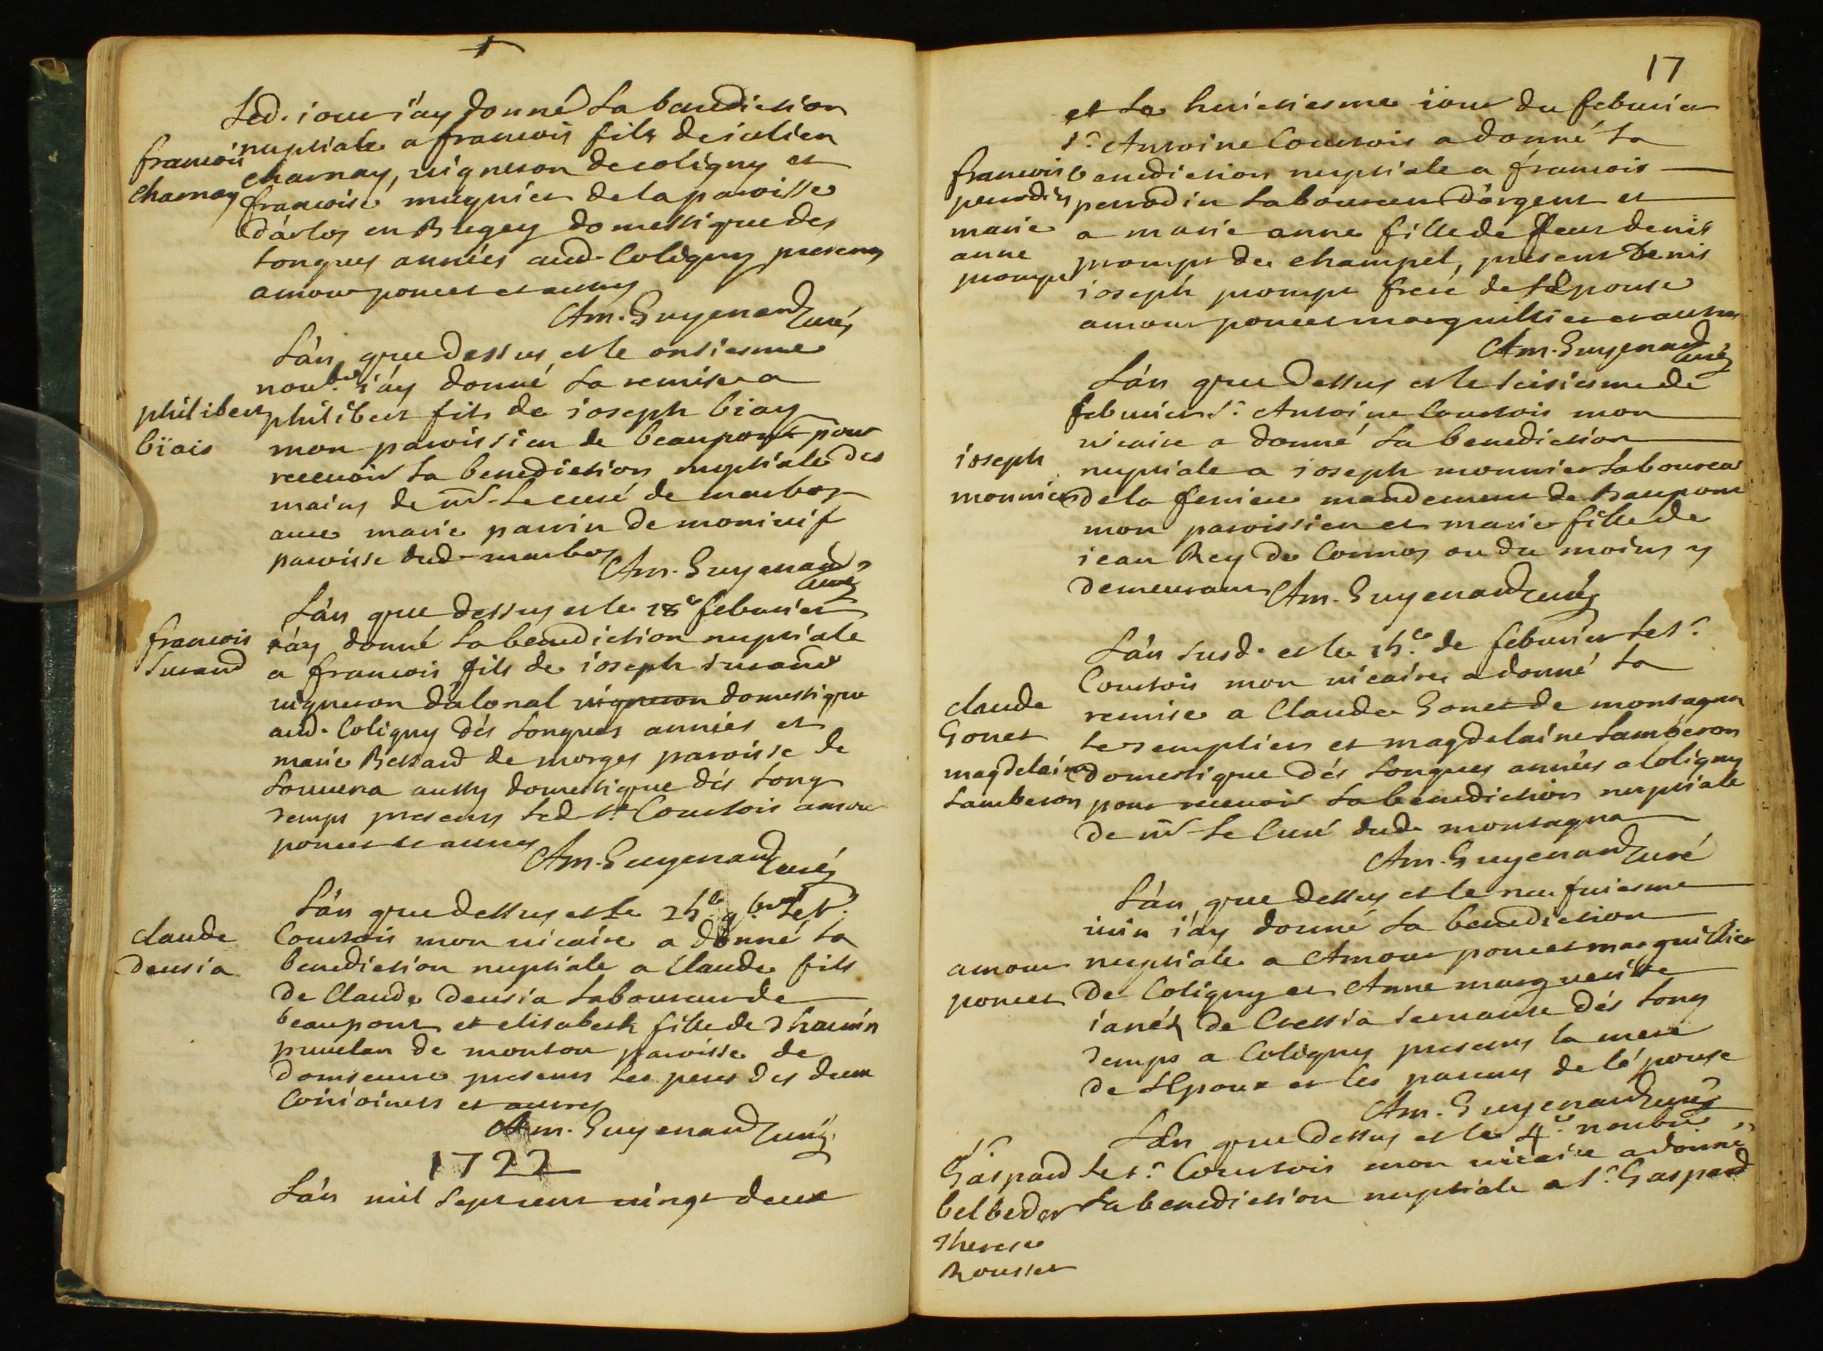 Led. iour i'ay donné la benediction
nuptiale a francois fils de iulien
francois
charnay
charnay, vigneron de coligny et
francoise mugnier de la paroisse
d'arlos en Bugey domestique des
longues années aud. Coligny presens
amour poncet et autres
Am. Guyenard curé
L'an que dessus et le onsiesme
novbre i'ay donné la remise a
philibert
biais
philibert fils de ioseph biay
mon paroissien de beaupont pour
recevoir la benediction nuptiale des
mains de mr le curé de marboz
avec marie parvin de
paroisse dud. marboz
Am. Guyenard curé
L'an que dessus et le 18e febvrier
francois
surand
i'ay donné la benediction nuptiale
a francois fils de ioseph surand
vigneron d'alonal vigneron domestique
aud. Coligny dés longues années et
marie Bessard de morges paroisse de
Louvena aussy domestique dés long
temps presens led. sr. Courtois amour
poncet et autres
Am. Guyenard curé
L'an que dessus et le 25e 9bre le sr.
claude
deusia
Courtois mon vicaire a donné la
benediction nuptiale a Claude fils
de Claude deusia laboureur de
beaupont et elisabeth fille de thauvin
de moulon paroisse de
domseure presens les peres des deux
Conioincts et autres
Am. Guyenard curé
1722
L'an mil sept cent vingt deux
17
et le huictiesme iour du febvrier
sr. Antoine Courtois a donné la
francois
perrodin
marie
anne
prompt
benediction nuptiale a francois
perrodin laboureur d'argent et
a marie anne fille de feu denis
prompt de champel, present Denis
ioseph prompt frere de l'Epouse
amour poncet marguillier et autres
Am. Guyenard curé
L'an que dessus et le seisiesme de
febvrier sr. Antoine Courtois mon
vicaire a donné la benediction
ioseph
monnier
nuptiale a ioseph monnier laboureur
de la mandement de Beaupont
mon paroissien et marie fille de
iean Rey de Cormoz ou du moins y
demeurant Am. Guyenard curé
L'an susd. et le 15e. de febvrier le sr.
Courtois mon vicaire a donné la
claude
Gonet
magdelaine
Lamberon
remise a Claude Gonet de montagna
le templier et magdelaine Lamberon
domestique dés longues années a Coligny
pour recevoir la benediction nuptiale
de mr le Curé dud. montagna
Am. Guyenard curé
L'an que dessus et le neufviesme
iuin i'ay donné la benediction
amour
poncet
nuptiale a Amour poncet marguillier
de Coligny et Anne marguerite
ianéd de Cressia servante dés long
temps a Coligny presens la mere
de l'Epoux et les parens de l'épouse
Am. Guyenard curé
L'an que dessus et le 4e novbre
sr.
Gaspard
belbeder
therese
Rousset
le sr. Courtois mon vicaire a donné
la benediction nuptiale a sr. Gaspard